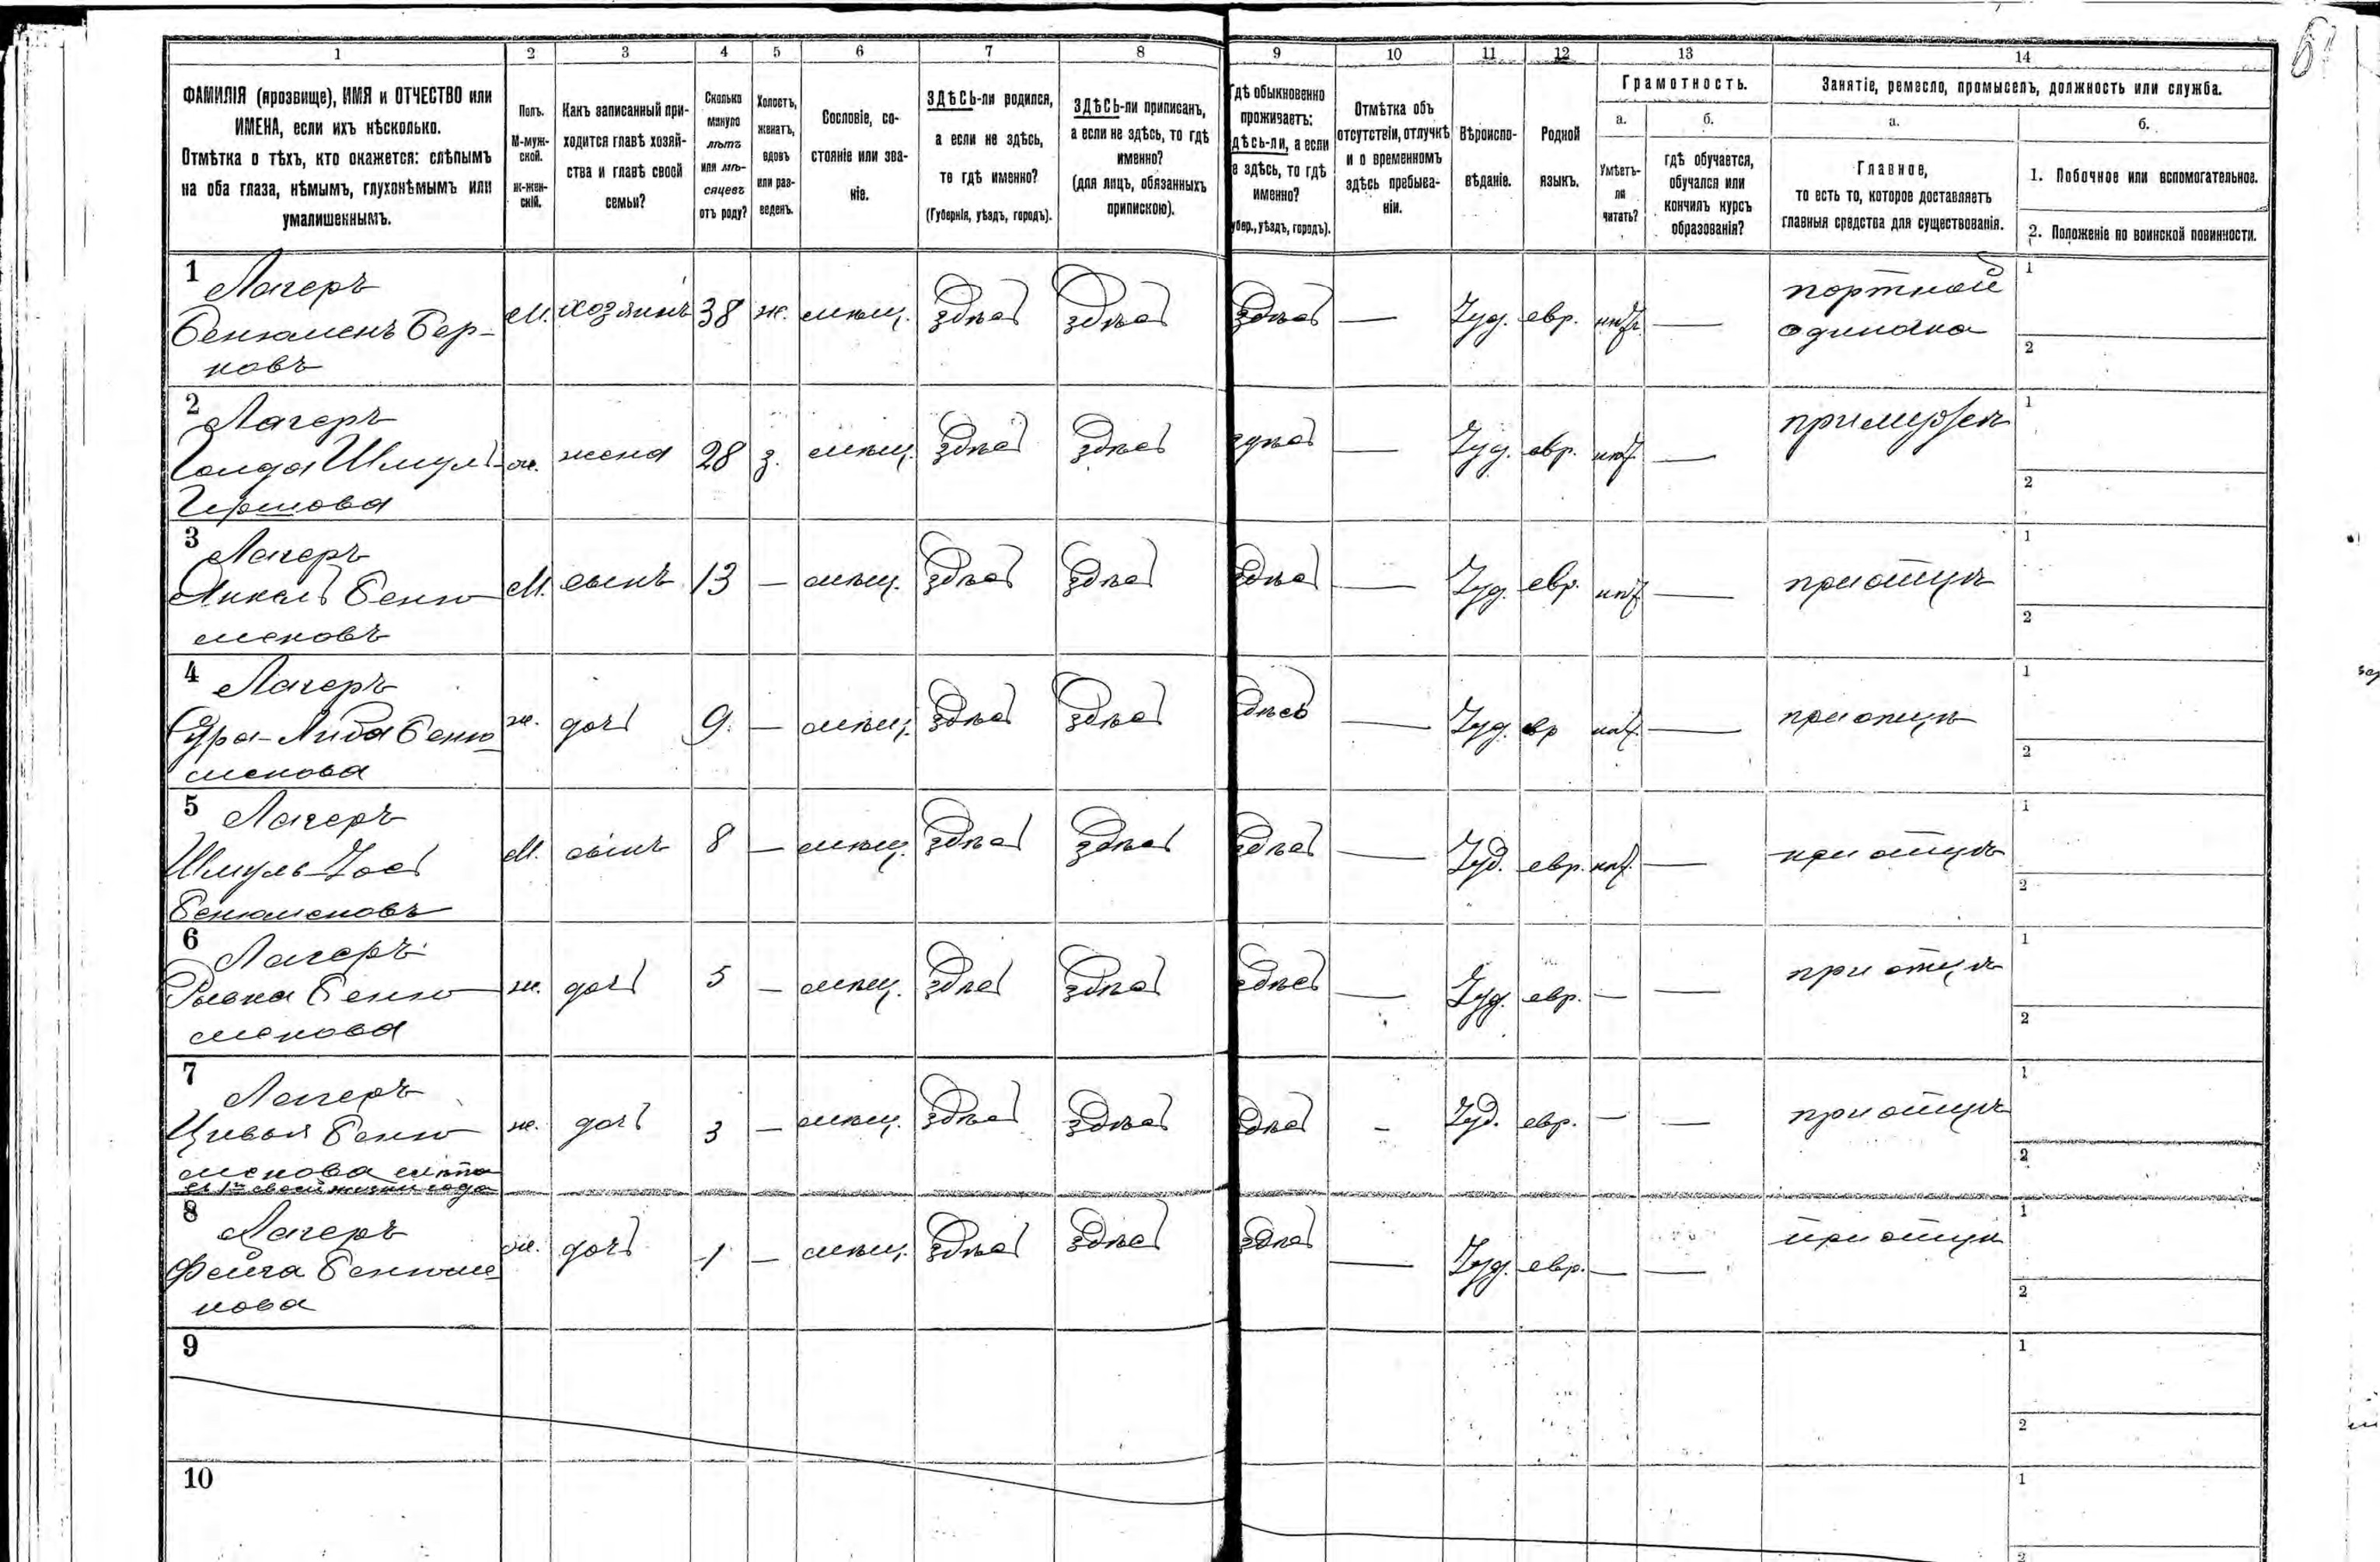 1 2 3 4 5 6 7 8 9 10 11 12 13 14
ФАМИЛІЯ (прозвище), ИМЯ и ОТЧЕСТВО или
ИМЕНА, если ихъ нѣсколько.
Отмѣтка о тѣхъ, кто окажется: слѣпымъ
на оба глаза, нѣмымъ, глухонѣмымъ или
умалишеннымъ.
Полъ.
М-муж-
ской.
ж-жен-
скій.
Какъ записанный при-
ходится главѣ хозяй-
ства и главѣ своей
семьи?
Сколько
минуло
лѣтъ
или мѣ-
сяцевъ
отъ роду?
Холостъ,
женатъ,
вдовъ
или раз-
веденъ.
Сословіе, со-
стояніе или зва-
ніе.
ЗДѢСЬ-ли родился,
а если не здѣсь,
то гдѣ именно?
(Губернія, уѣздъ, городъ).
ЗДѢСЬ-ли приписанъ,
а если не здѣсь, то гдѣ
именно?
(для лицъ, обязанныхъ
припискою).
Гдѣ обыкновенно
проживаетъ:
здѣсь-ли, а если
не здѣсь, то гдѣ
именно?
(Губер., уѣздъ, городъ).
Отмѣтка объ
отсутствіи, отлучкѣ
и о временномъ
здѣсь пребыва-
ніи.
Вѣроиспо-
вѣданіе.
Родной
языкъ.
Грамотность.
а.
Умѣетъ-
ли
читать?
б.
гдѣ обучается,
обучался или
кончилъ курсъ
образованія?
Занятіе, ремесло, промыселъ, должность или служба.
а.
Главное,
то есть то, которое доставляетъ
главныя средства для существованія.
б.
1. Побочное или вспомогательное.
2. Положеніе по воинской повинности.
1 Лагеръ
Бенюменъ Бер-
ковъ
М. хозяинъ 38 ж. мѣщ. здѣсь здѣсь здѣсь — Іуд. евр. нѣтъ —
портной
одиночка
1
2
2 Лагеръ
Голда Шмуль-
Гершова
ж. жена 28 з. мѣщ. здѣсь здѣсь здѣсь — Іуд. евр. нѣт —
при мужѣ
1
2
3 Лагеръ
Янкель Беню
меновъ
М. сынъ 13 — мѣщ. здѣсь здѣсь здѣсь — Іуд. евр. нѣт —
при отцѣ
1
2
4 Лагеръ
Сура-Либа Беню
менова
ж. дочь 9. — мѣщ. здѣсь здѣсь здѣсь — Іуд. евр нѣт. —
при отцѣ
1
2
5 Лагеръ
Шмуль-Іось
Бенюменовъ
М. сынъ 8 — мѣщ. здѣсь здѣсь здѣсь — Іуд. евр. нѣт. —
при отцѣ
1
2
6 Лагеръ
Рывка Беню
менова
ж. дочь 5 — мѣщ. здѣсь здѣсь здѣсь — Іуд. евр. — —
при отцѣ
1
2
7 Лагеръ
Цивья Беню
менова слѣпа
съ 1го своей жизни года
ж. дочь 3 — мѣщ. здѣсь здѣсь здѣсь - Іуд. евр. — —
при отцѣ
1
2
8 Лагеръ
Фейга Бенюме
нова
ж. дочь 1 — мѣщ. здѣсь здѣсь здѣсь — Іуд. евр. — —
при отцѣ
1
2
9
1
2
10
1
2